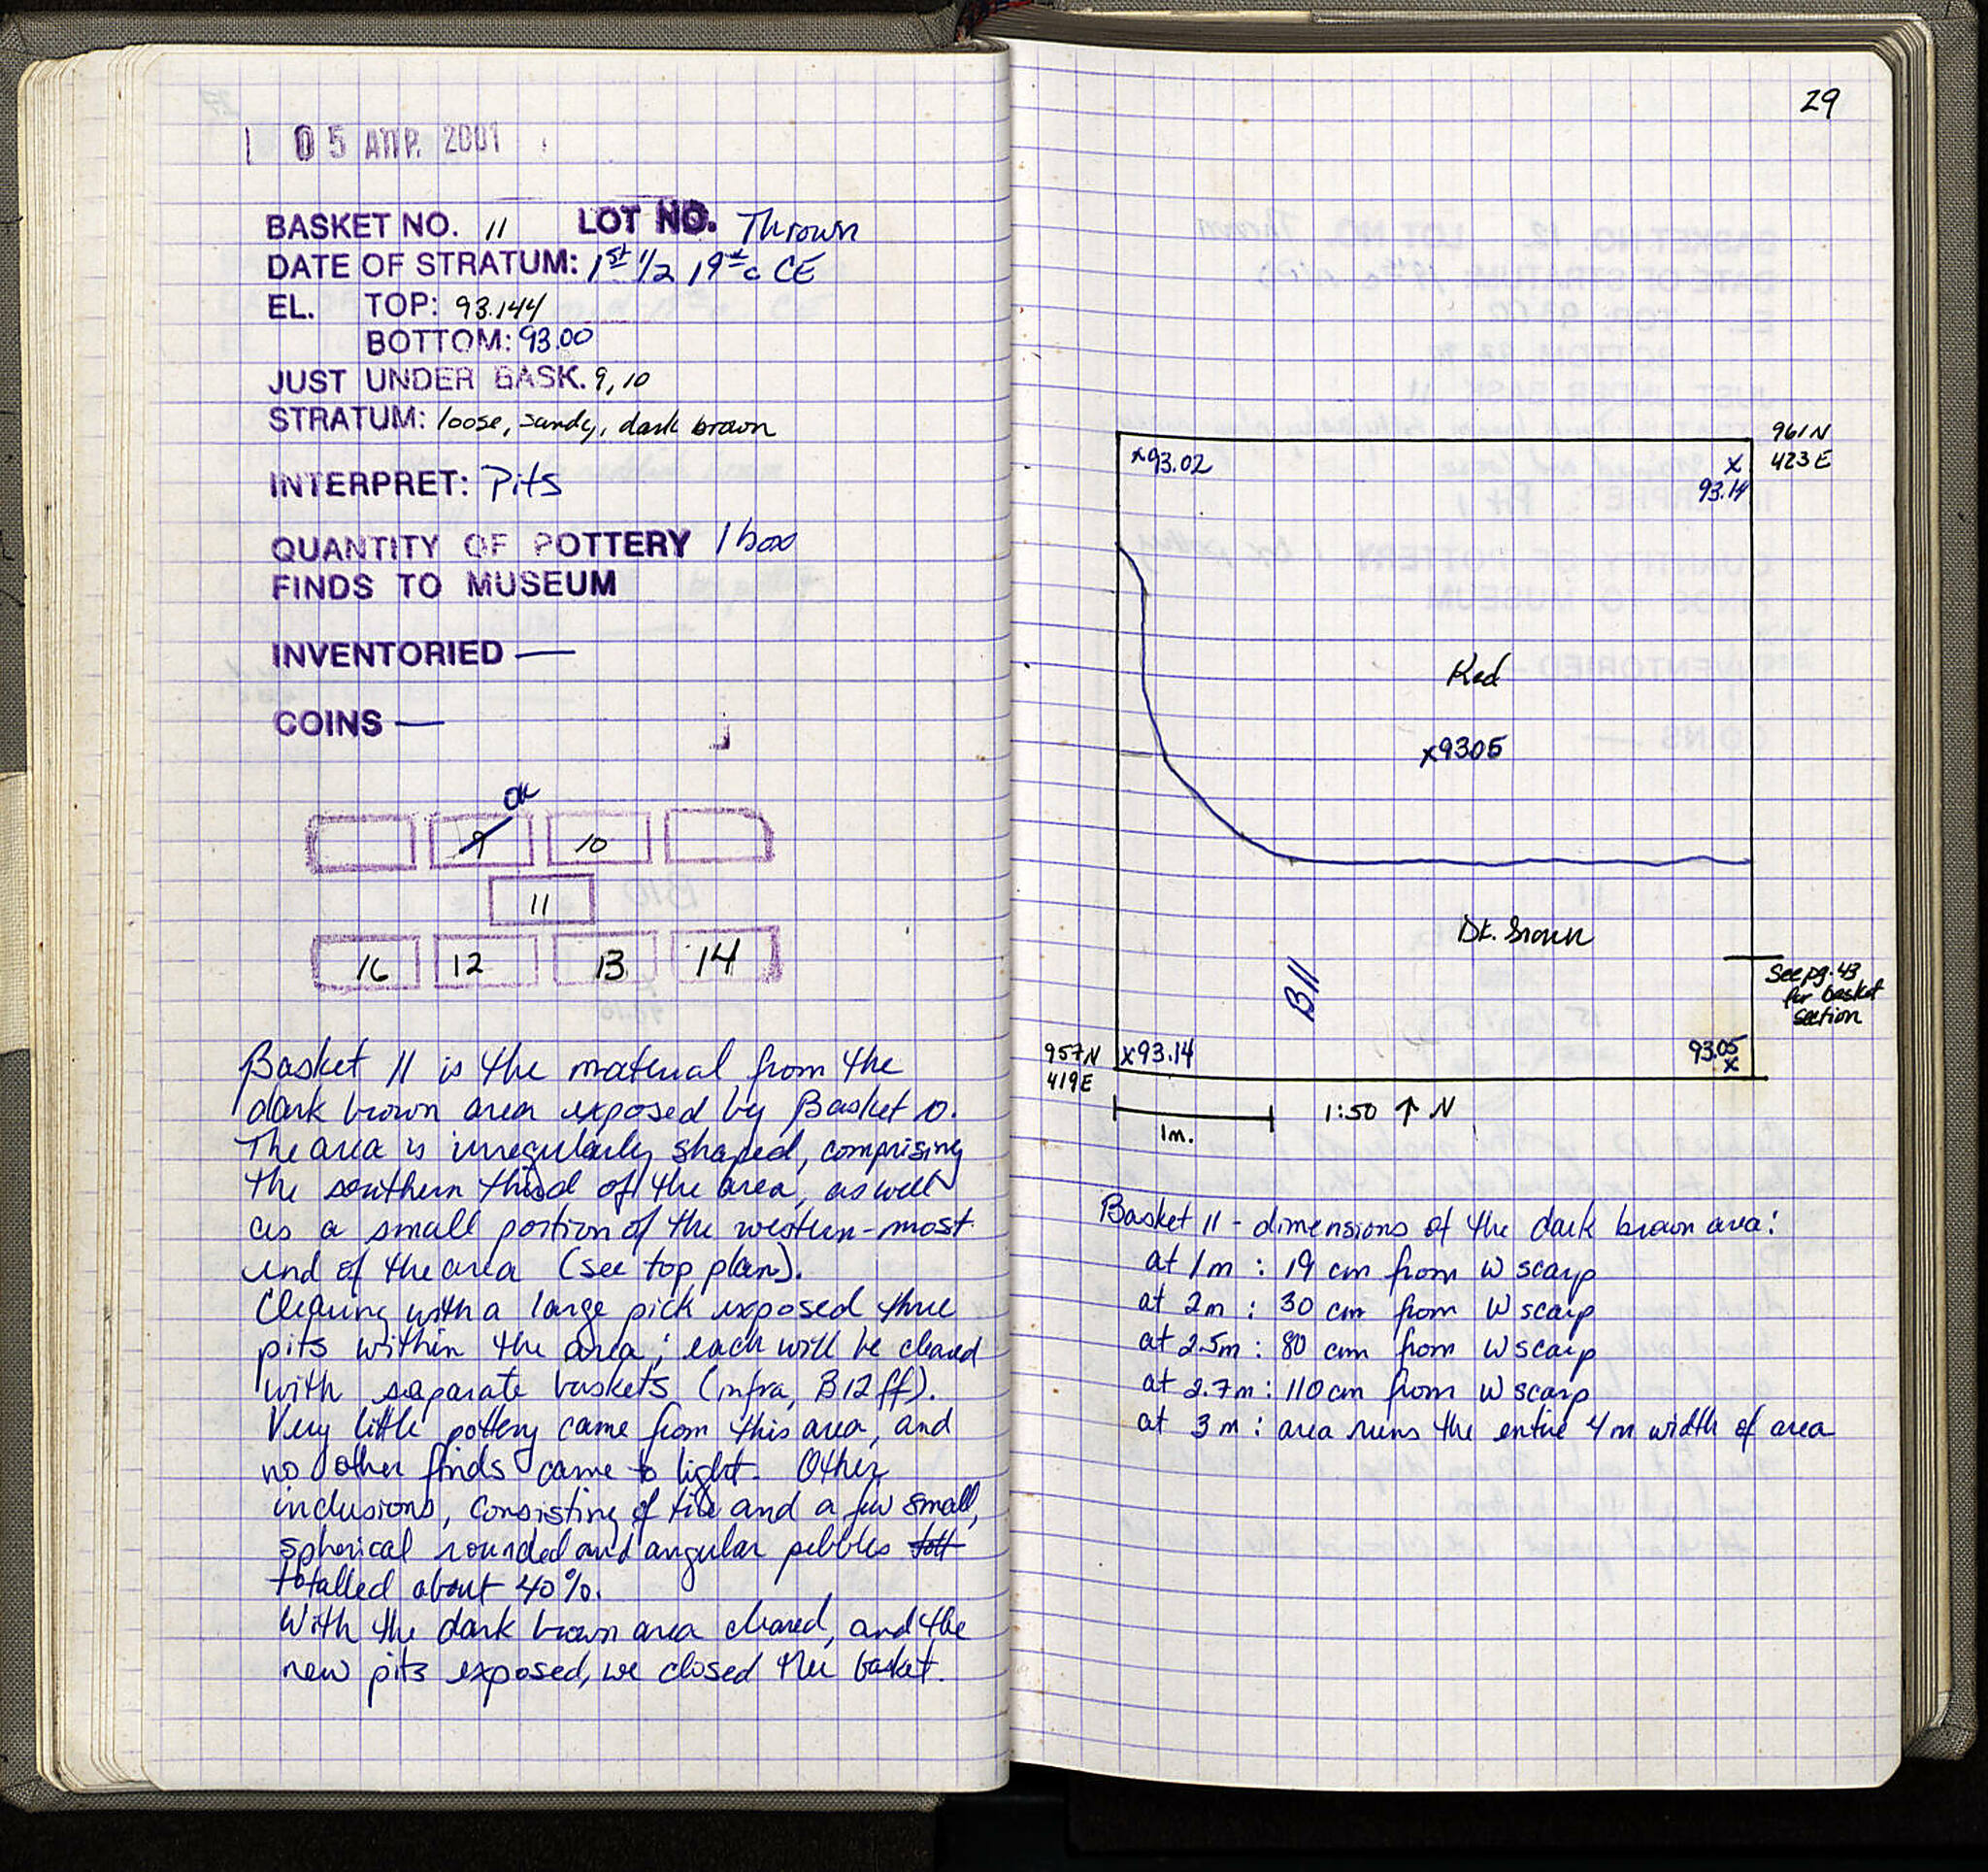 05 ΑΠΡ. 2001
BASKET NO. 11 LOT NO. Thrown
DATE OF STRATUM: 1st 1/2 19th c CE
EL. TOP: 93.144
BOTTOM: 93.00
JUST UNDER BASK. 9, 10
STRATUM: loose, sandy, dark brown
INTERPRET: Pits
QUANTITY OF POTTERY 1 box
FINDS TO MUSEUM
INVENTORIED —
COINS —
OK
9 10
11
16 12 13 14
Basket 11 is the material from the
dark brown area exposed by Basket 10.
The area is irregularly shaped, comprising
the southern third of the area, as well
as a small portion of the western-most
end of the area (see top plan).
Cleaning with a large pick exposed three
pits within the area; each will be cleared
with separate baskets (infra, B12ff).
Very little pottery came from this area, and
no other finds came to light. Other
inclusions, consisting of tile and a few small,
spherical rounded and angular pebbles
totalled about 40%.
With the dark brown area cleared, and the
new pits exposed, we closed the basket.
29
961N
423E
x93.02
x
93.14
Red
x9305
Dk. brown
B11
See pg. 43
for basket
section
957N
419E
x93.14
93.05
x
1m.
1:50 ↑ N
Basket 11 - dimensions of the dark brown area:
at 1m : 19 cm from W scarp
at 2m : 30 cm from W scarp
at 2.5m : 80 cm from W scarp
at 2.7m : 110 cm from W scarp
at 3m : area runs the entire 4m width of area